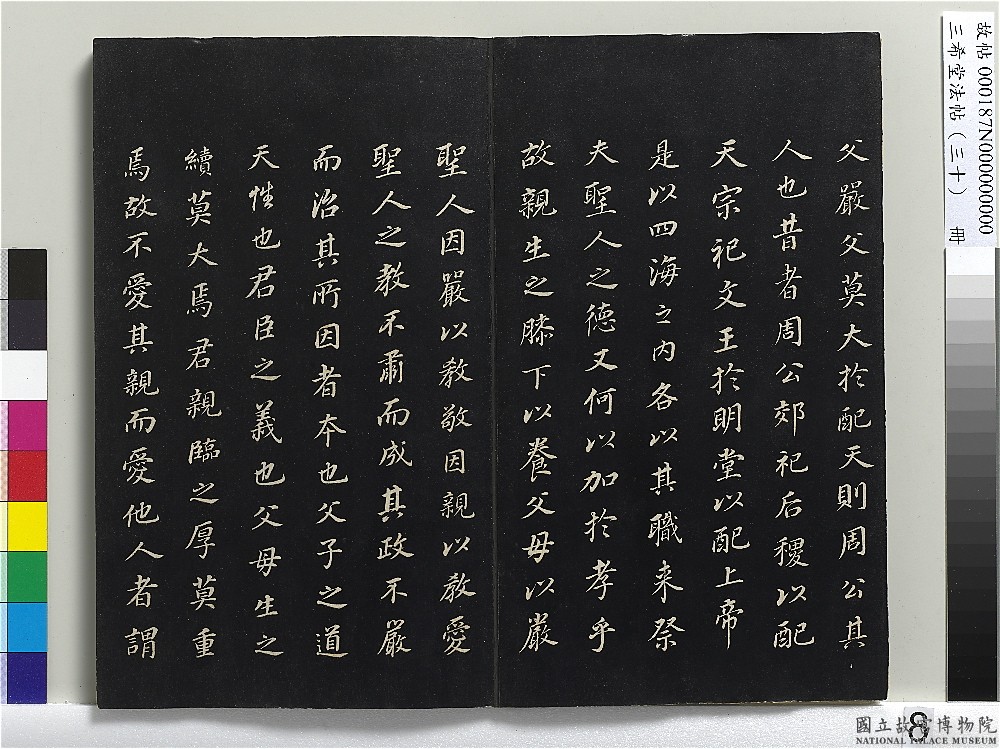 父嚴父莫大於配天則周公其
人也昔者周公郊祀后稷以配
天宗祀文王於明堂以配上帝
是以四海之內各以其職来祭
夫聖人之德又何以加於孝乎
故親生之膝下以養父母以嚴
聖人因嚴以教敬因親以教愛
聖人之教不肅而成其政不嚴
而治其所因者本也父子之道
天性也君臣之義也父母生之
續莫大焉君親臨之厚莫重
焉故不愛其親而愛他人者謂
故帖 000187N000000000
三希堂法帖(三十) 冊
8
國立故宮博物院
NATIONAL PALACE MUSEUM